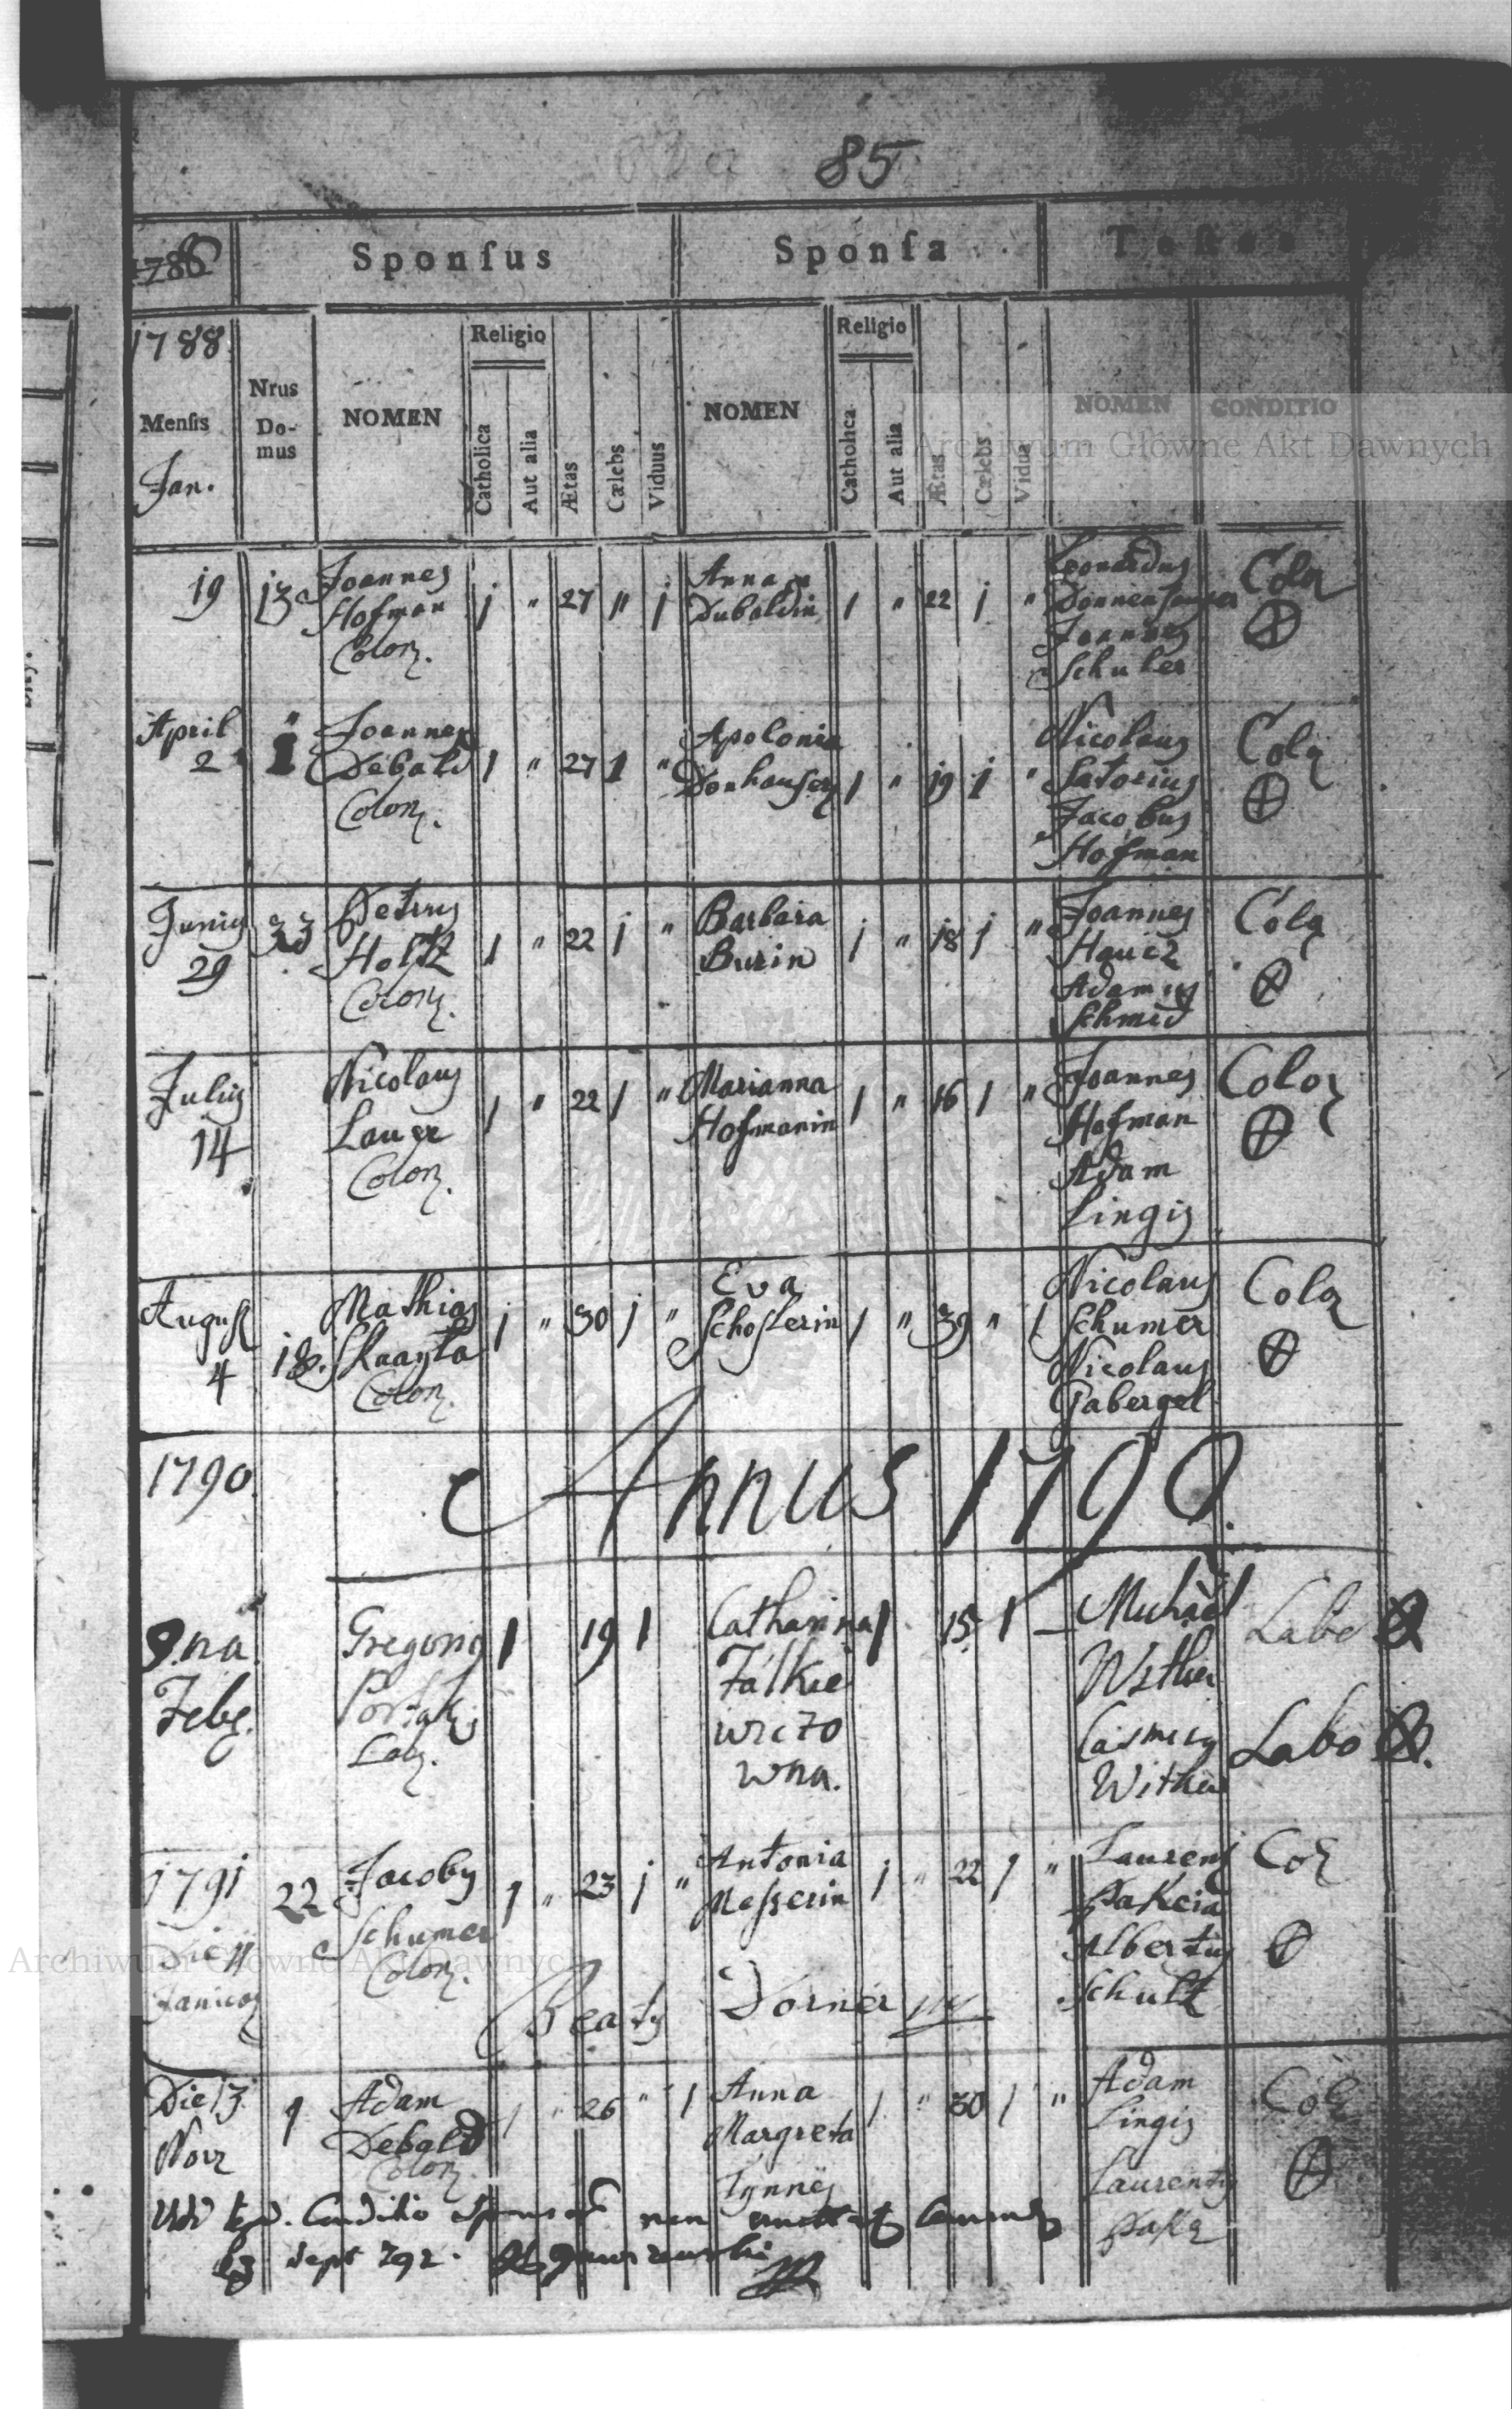 85
1786
Sponsus Sponsa Testes
1788
Mensis
Jan.
Nrus Domus
NOMEN
Religio
Catholica
Aut alia
Ætas
Cælebs
Viduus
NOMEN
Religio
Catholica
Aut alia
Ætas
Cælebs
Vidua
NOMEN
CONDITIO
Archiwum Główne Akt Dawnych
19 13 Joannes
Hofman
Colon.
1 " 27 " 1
Anna
Dubaldin
1 " 22 1 "
Leonardus
Joannes
Schuker
Colon
April
2
1
Joannes
Debald
Colon.
1 " 27 1 "
Apolonia
Donhauser
1 " 19 1 "
Nicolaus
Satorius
Jacobus
Hofman
Colon
Junius
29
33
Petrus
Holtz
Colon.
1 " 22 1 "
Barbara
Burin
1 " 18 1 "
Joannes
Haucz
Adamus
Schmid
Colon
Julius
14
Nicolaus
Lauer
Colon.
1 " 22 1 "
Marianna
Hofmanin
1 " 16 1 "
Joannes
Hofman
Adam
Lingis
Colon
August
4
18.
Mathias
Colon.
1 " 30 1 "
Eva
Schosterin
1 " 39 " 1
Nicolaus
Schumer
Nicolaus
Gabergel
Colon
1790.
Annus 1790.
9.na
Feb.
Gregorius
Lab.
1 19 1
Catharina
Falkie
wiczo
wna.
1 15 1 –
Michael
Withen
Casimirus
Withen
Labo
Labo
1791
Die 11
Januar
22
Jacobus
Schumer
Colon.
1 " 23 1 "
Antonia
Messerin
1 " 22 1 "
Laurens
Albertus
Schultz
Col
Beatus Dorner
Die 13
Nov
1
Adam
Debald
Colon.
1 " 26 " 1
Anna
Margreta
Tynnes
1 " 30 1 "
Adam
Lingis
Laurentius
Col
Conditio non
Sept 792.
Archiwum Główne Akt Dawnych